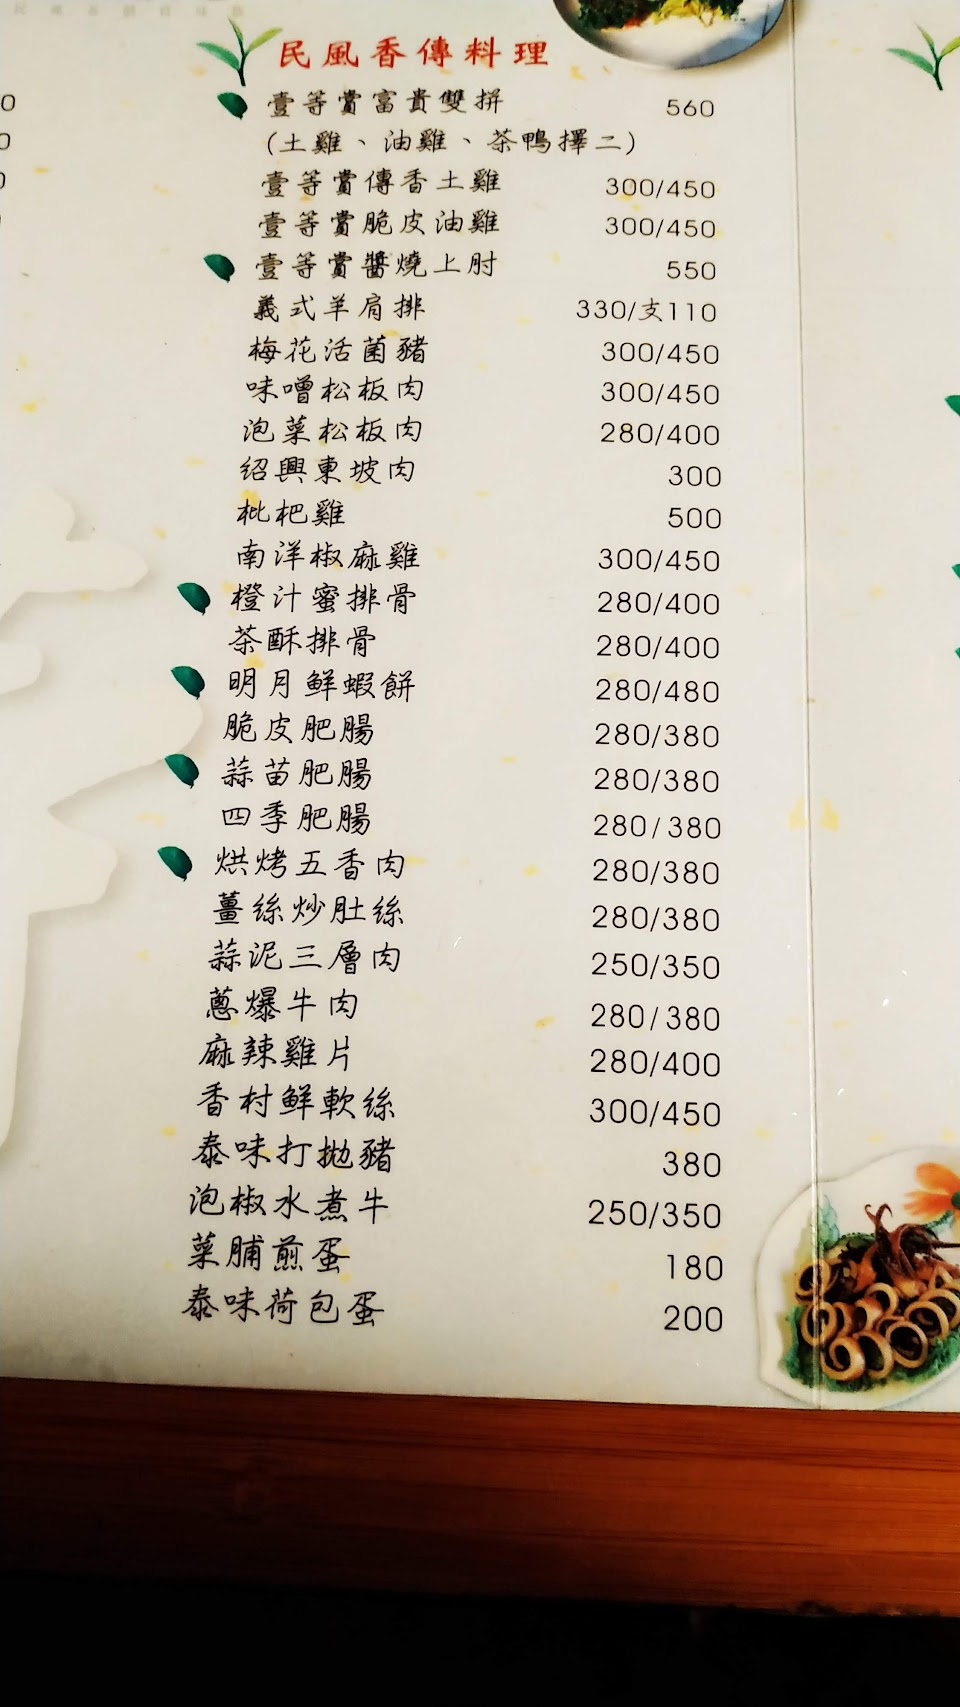 民風香傳料理
壹等賞富貴雙拼 560
(土雞、油雞、茶鴨擇二)
壹等賞傳香土雞 300/450
壹等賞脆皮油雞 300/450
壹等賞醬燒上肘 550
義式羊肩排 330/支110
梅花活菌豬 300/450
味噌松板肉 300/450
泡菜松板肉 280/400
紹興東坡肉 300
枇杷雞 500
南洋椒麻雞 300/450
橙汁蜜排骨 280/400
茶酥排骨 280/400
明月鮮蝦餅 280/480
脆皮肥腸 280/380
蒜苗肥腸 280/380
四季肥腸 280/380
烘烤五香肉 280/380
薑絲炒肚絲 280/380
蒜泥三層肉 250/350
蔥爆牛肉 280/380
麻辣雞片 280/400
香村鮮軟絲 300/450
泰味打拋豬 380
泡椒水煮牛 250/350
菜脯煎蛋 180
泰味荷包蛋 200